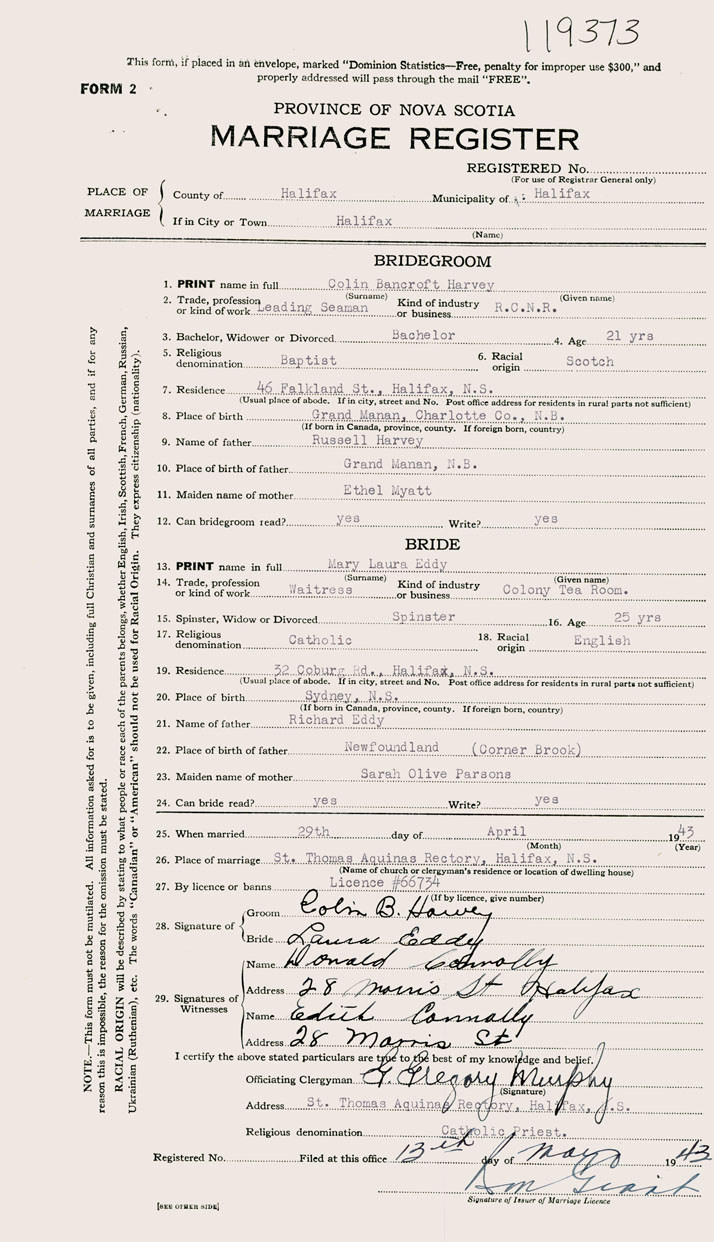 119373
This form, if placed in an envelope, marked "Dominion Statistics—Free, penalty for improper use $300," and
properly addressed will pass through the mail "FREE".
FORM 2
PROVINCE OF NOVA SCOTIA
MARRIAGE REGISTER
REGISTERED No.
(For use of Registrar General only)
PLACE OF MARRIAGE
County of Halifax Municipality of Halifax
If in City or Town Halifax
(Name)
BRIDEGROOM
1. PRINT name in full Colin Bancroft Harvey
(Surname) (Given name)
2. Trade, profession or kind of work Leading Seaman Kind of industry or business R.C.N.R.
3. Bachelor, Widower or Divorced Bachelor 4. Age 21 yrs
5. Religious denomination Baptist 6. Racial origin Scotch
7. Residence 46 Falkland St., Halifax, N.S.
(Usual place of abode. If in city, street and No. Post office address for residents in rural parts not sufficient)
8. Place of birth Grand Manan, Charlotte Co., N.B.
(If born in Canada, province, county. If foreign born, country)
9. Name of father Russell Harvey
10. Place of birth of father Grand Manan, N.B.
11. Maiden name of mother Ethel Myatt
12. Can bridegroom read? yes Write? yes
BRIDE
13. PRINT name in full Mary Laura Eddy
(Surname) (Given name)
14. Trade, profession or kind of work Waitress Kind of industry or business Colony Tea Room.
15. Spinster, Widow or Divorced Spinster 16. Age 25 yrs
17. Religious denomination Catholic 18. Racial origin English
19. Residence 32 Coburg Rd., Halifax, N.S.
(Usual place of abode. If in city, street and No. Post office address for residents in rural parts not sufficient)
20. Place of birth Sydney, N.S.
(If born in Canada, province, county. If foreign born, country)
21. Name of father Richard Eddy
22. Place of birth of father Newfoundland (Corner Brook)
23. Maiden name of mother Sarah Olive Parsons
24. Can bride read? yes Write? yes
25. When married 29th day of April 1943
(Month) (Year)
26. Place of marriage St. Thomas Aquinas Rectory, Halifax, N.S.
(Name of church or clergyman's residence or location of dwelling house)
27. By licence or banns Licence #66734
(If by licence, give number)
28. Signature of
Groom Colin B. Harvey
Bride Laura Eddy
29. Signatures of Witnesses
Name Donald Connolly
Address 28 Morris St Halifax
Name Edith Connally
Address 28 Morris St
I certify the above stated particulars are true to the best of my knowledge and belief.
Officiating Clergyman F. Gregory Murphy
(Signature)
Address St. Thomas Aquinas Rectory, Halifax, N.S.
Religious denomination Catholic Priest.
Registered No. Filed at this office 13th day of May 1943
Signature of Issuer of Marriage Licence
[SEE OTHER SIDE]
NOTE.—This form must not be mutilated. All information asked for is to be given, including full Christian and surnames of all parties, and if for any
reason this is impossible, the reason for the omission must be stated.
RACIAL ORIGIN will be described by stating to what people or race each of the parents belongs, whether English, Irish, Scottish, French, German, Russian,
Ukrainian (Ruthenian), etc. The words "Canadian" or "American" should not be used for Racial Origin. They express citizenship (nationality).